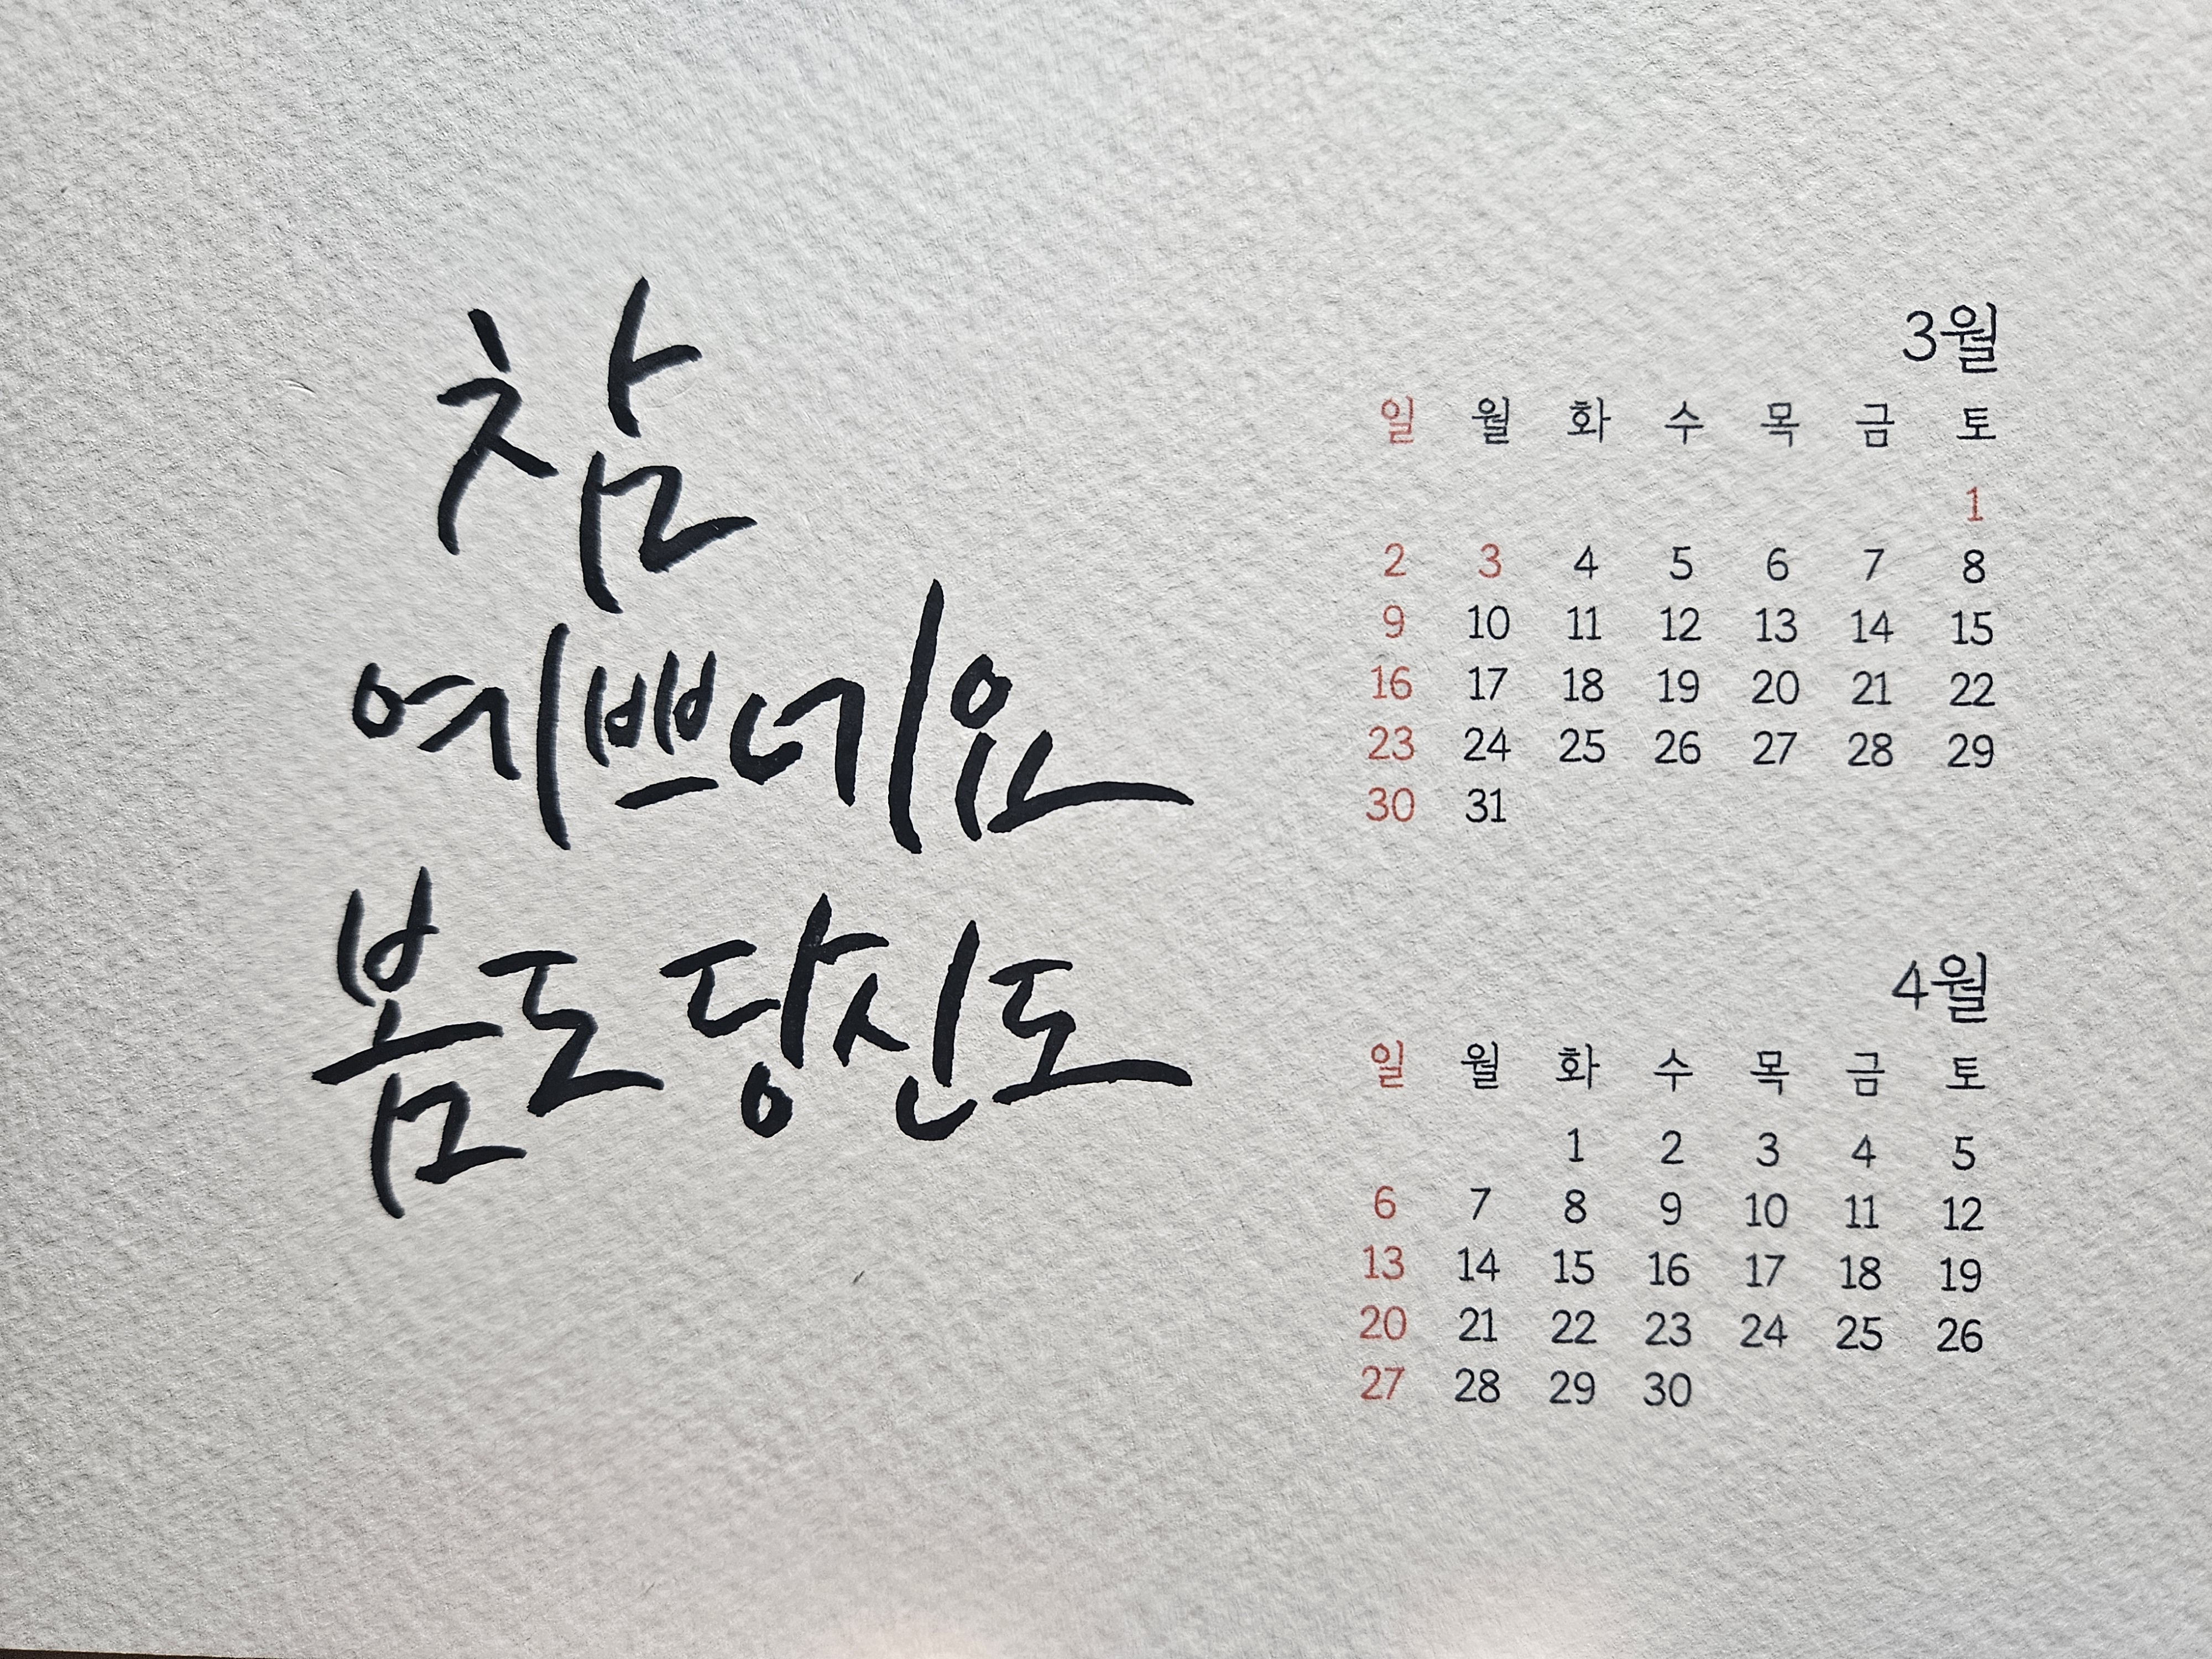 참
예쁘네요
봄도 당신도
3월
일 월 화 수 목 금 토
1
2 3 4 5 6 7 8
9 10 11 12 13 14 15
16 17 18 19 20 21 22
23 24 25 26 27 28 29
30 31
4월
일 월 화 수 목 금 토
1 2 3 4 5
6 7 8 9 10 11 12
13 14 15 16 17 18 19
20 21 22 23 24 25 26
27 28 29 30